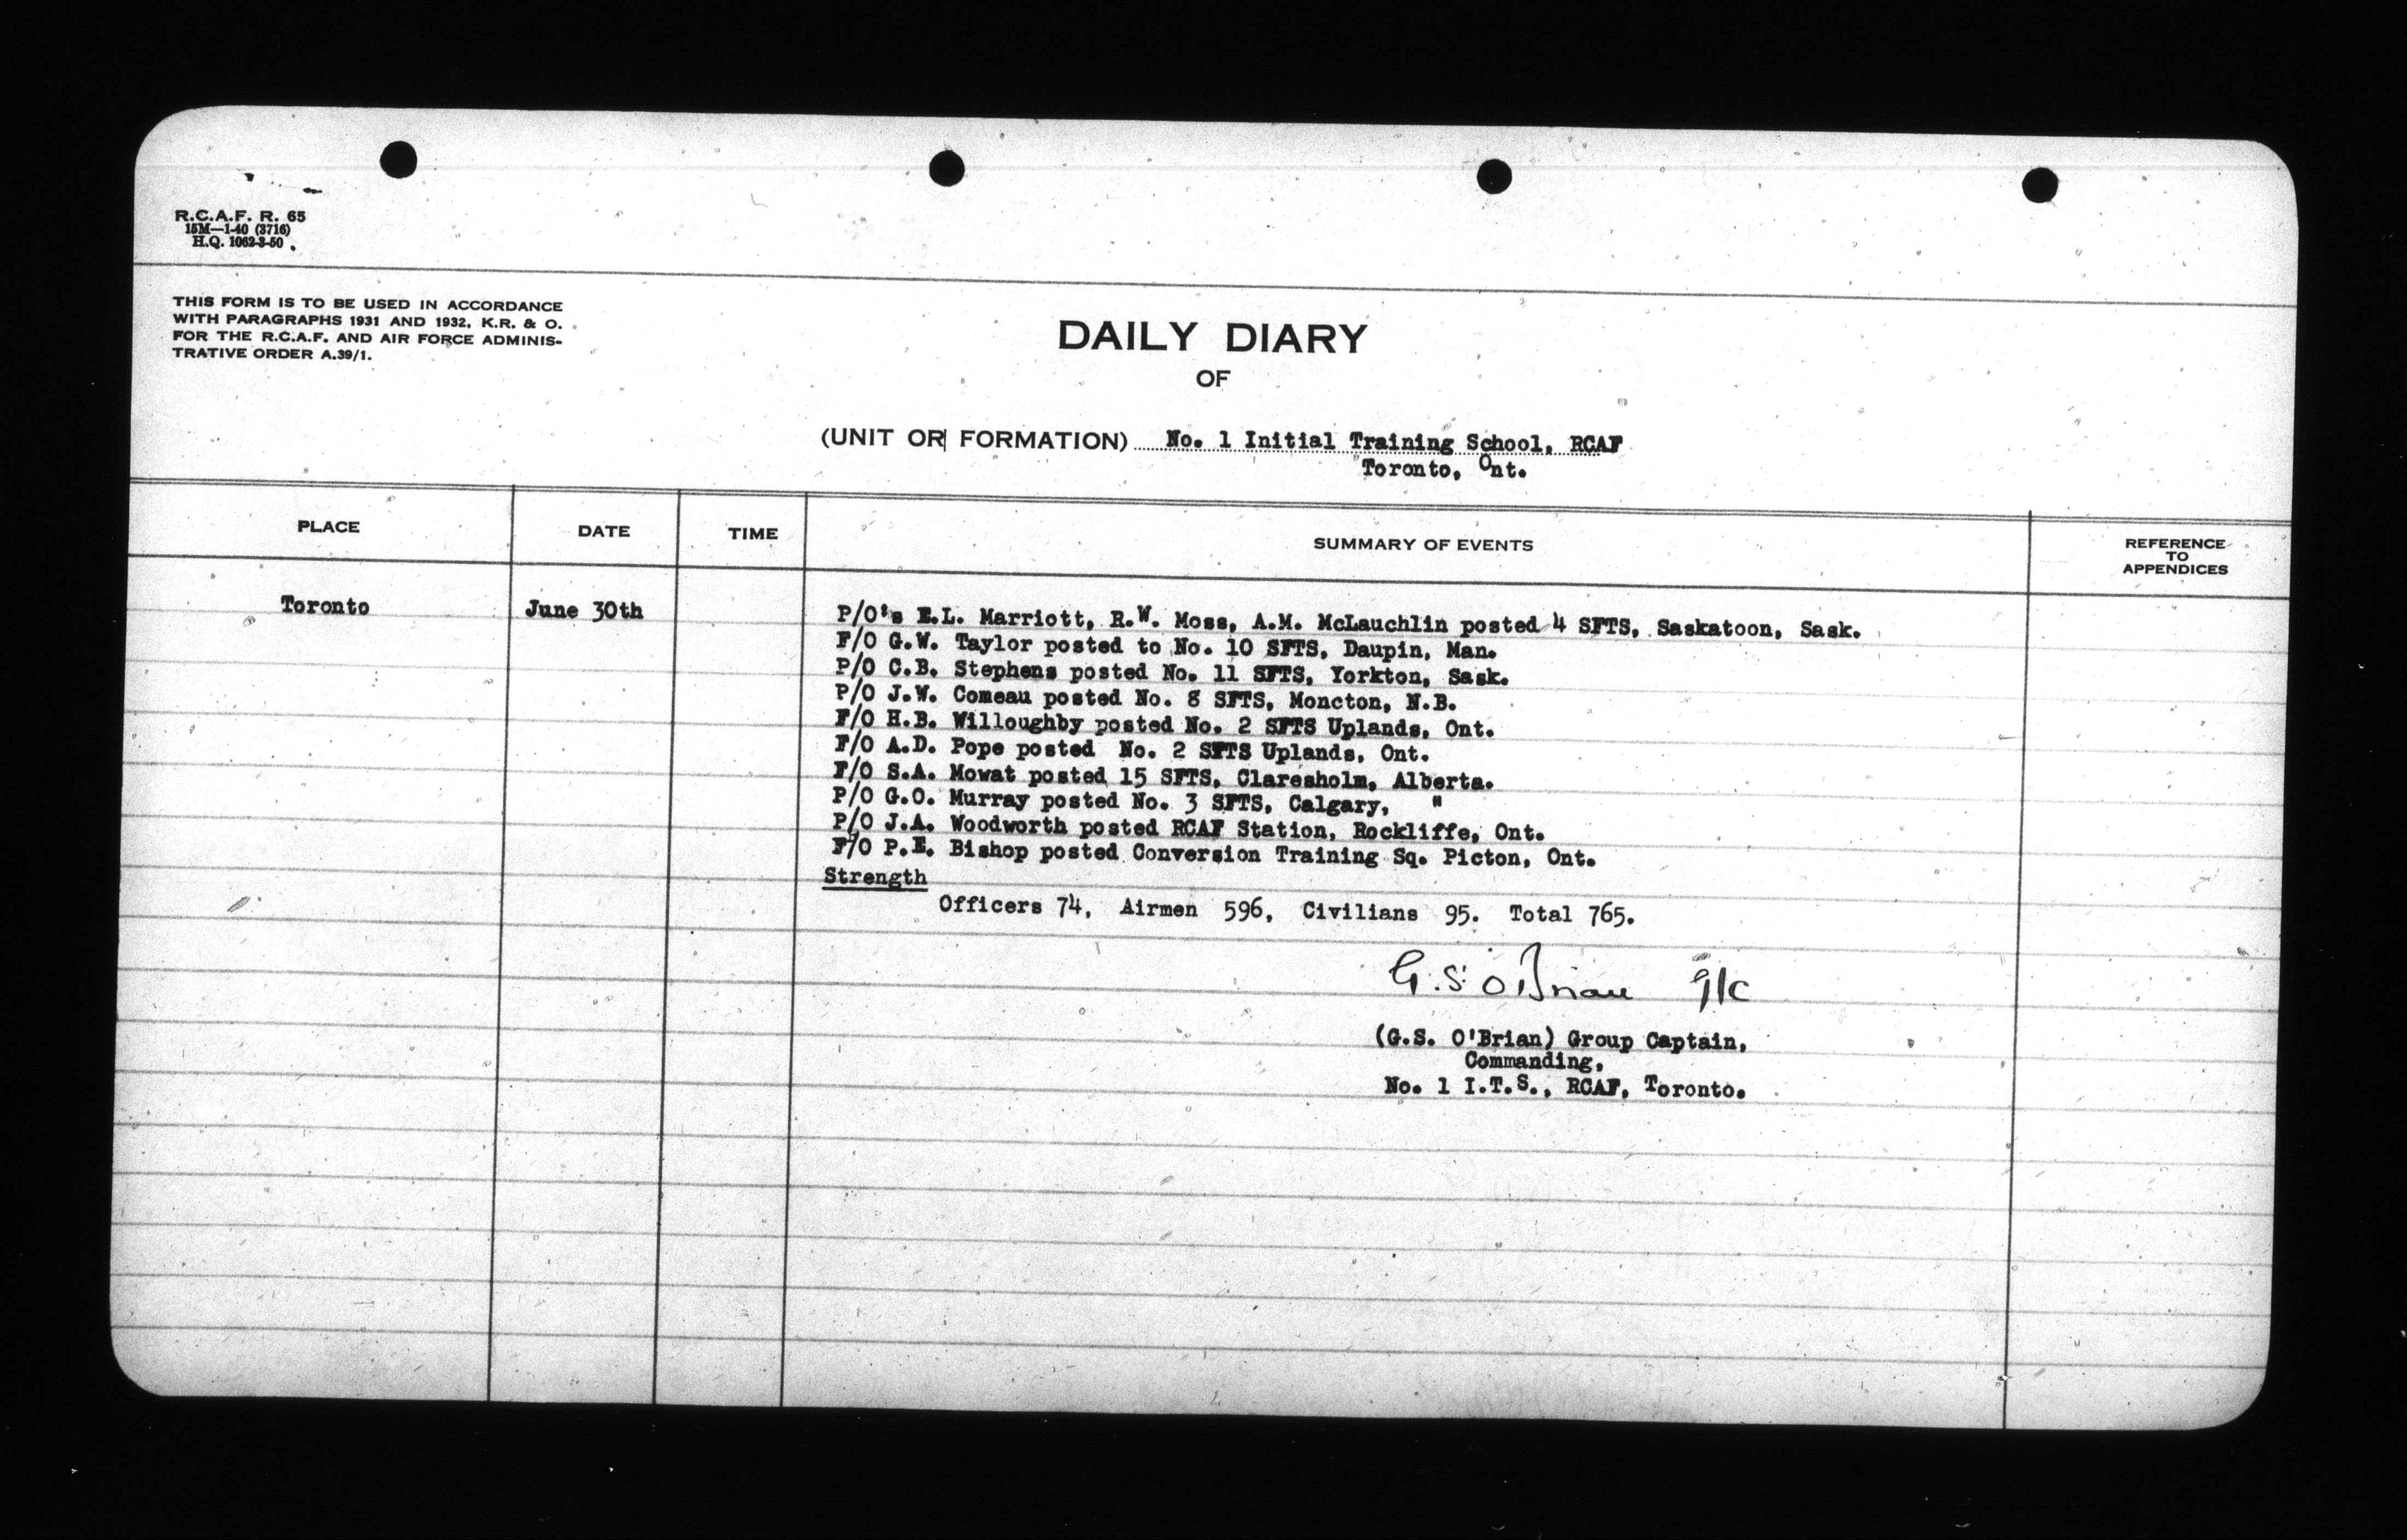 R.C.A.F. R. 65
15M—1-40 (3716)
H.Q. 1062-3-50
THIS FORM IS TO BE USED IN ACCORDANCE
WITH PARAGRAPHS 1931 AND 1932, K.R. & O.
FOR THE R.C.A.F. AND AIR FORCE ADMINIS-
TRATIVE ORDER A.39/1.
DAILY DIARY
OF
(UNIT OR FORMATION) No. 1 Initial Training School, RCAF
Toronto, Ont.
PLACE DATE TIME SUMMARY OF EVENTS REFERENCE TO APPENDICES
Toronto June 30th P/O's E.L. Marriott, R.W. Moss, A.M. McLauchlin posted 4 SFTS, Saskatoon, Sask.
F/O G.W. Taylor posted to No. 10 SFTS, Daupin, Man.
P/O C.B. Stephens posted No. 11 SFTS, Yorkton, Sask.
P/O J.W. Comeau posted No. 8 SFTS, Moncton, N.B.
F/O H.B. Willoughby posted No. 2 SFTS Uplands, Ont.
F/O A.D. Pope posted No. 2 SFTS Uplands, Ont.
F/O S.A. Mowat posted 15 SFTS, Claresholm, Alberta.
P/O G.O. Murray posted No. 3 SFTS, Calgary, "
P/O J.A. Woodworth posted RCAF Station, Rockliffe, Ont.
F/O P.E. Bishop posted Conversion Training Sq. Picton, Ont.
Strength
Officers 74, Airmen 596, Civilians 95. Total 765.
G.S. O'Brian G/C
(G.S. O'Brian) Group Captain,
Commanding,
No. 1 I.T.S., RCAF, Toronto.